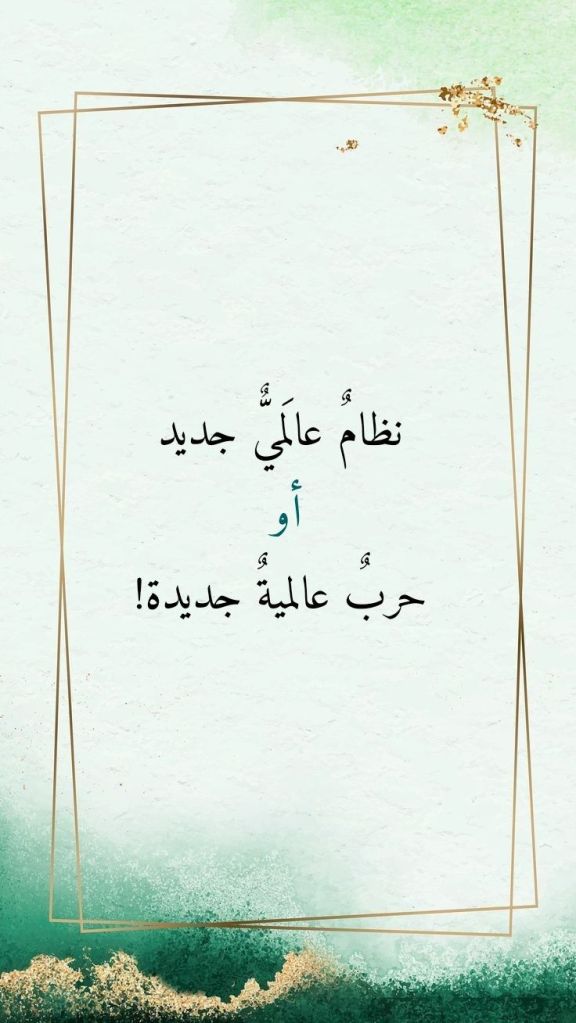 نظامٌ عالَميٌّ جديد
أو
حربٌ عالميةٌ جديدة!